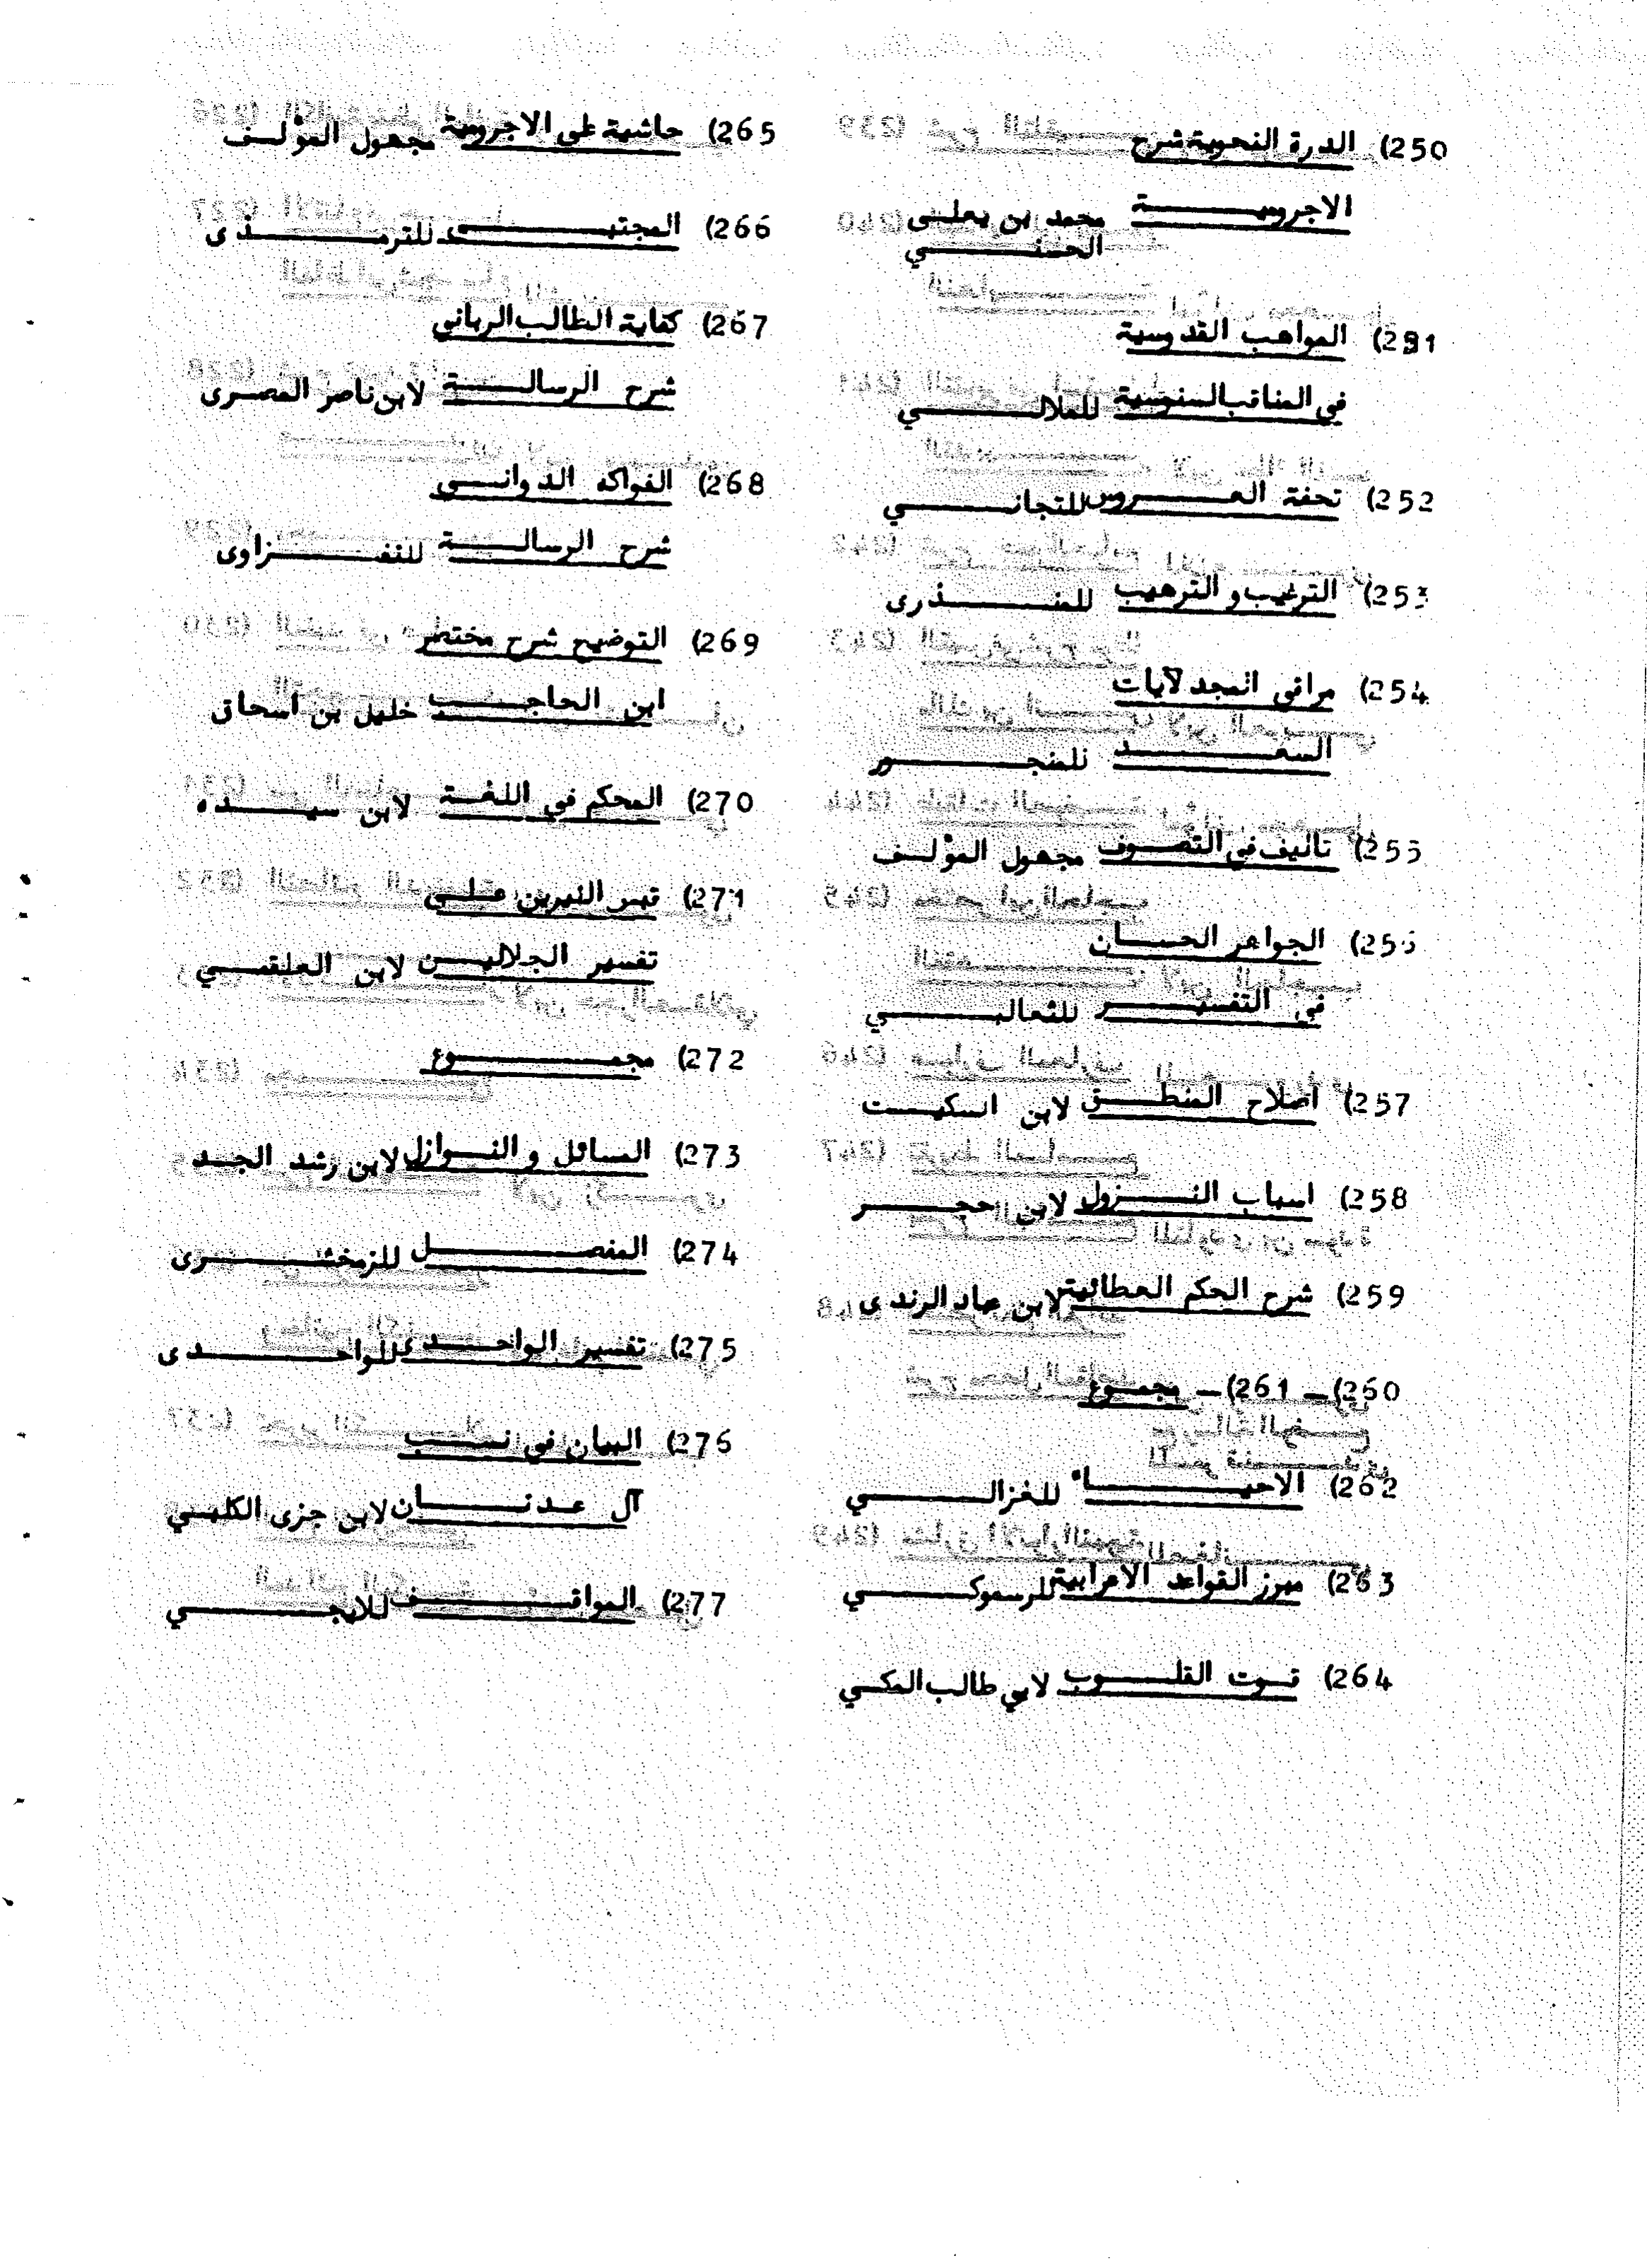 250) الدرة النحوية شرح
الاجروسية محمد بن يعلى
الحسني
251) المواهب القدوسية
في المناقب السنوسية للملالي
252) تحفة العروس للتجاني
253) الترغيب و الترهيب للمنذرى
254) مراقي المجد لآيات
السعد للمنجور
255) تأليف في التصوف مجهول المؤلف
256) الجواهر الحسان
في التفسير للثعالبي
257) اصلاح المنطق لابن السكيت
258) اسباب النزول لابن حجر
259) شرح الحكم العطائية لابن عباد الرندى
260) — 261) — مجموع
262) الاحياء للغزالي
263) مبرز القواعد الاعرابية للرسموكي
264) قوت القلوب لابي طالب المكي
265) حاشية على الاجروسية مجهول المؤلف
266) المجتبى للترمذى
267) كفاية الطالب الرباني
شرح الرسالة لابن ناصر المصرى
268) الفواكه الدواني
شرح الرسالة للنفزاوى
269) التوضيح شرح مختصر
ابن الحاجب خليل بن اسحاق
270) المحكم في اللغة لابن سيده
271) قبس النيرين على
تفسير الجلالين لابن العلقمي
272) مجموع
273) المسائل و النوازل لابن رشد الجد
274) المفصل للزمخشرى
275) تفسير الواحدى للواحدى
276) البيان في نسب
آل عدنان لابن جزى الكلبي
277) المواقف للايجي